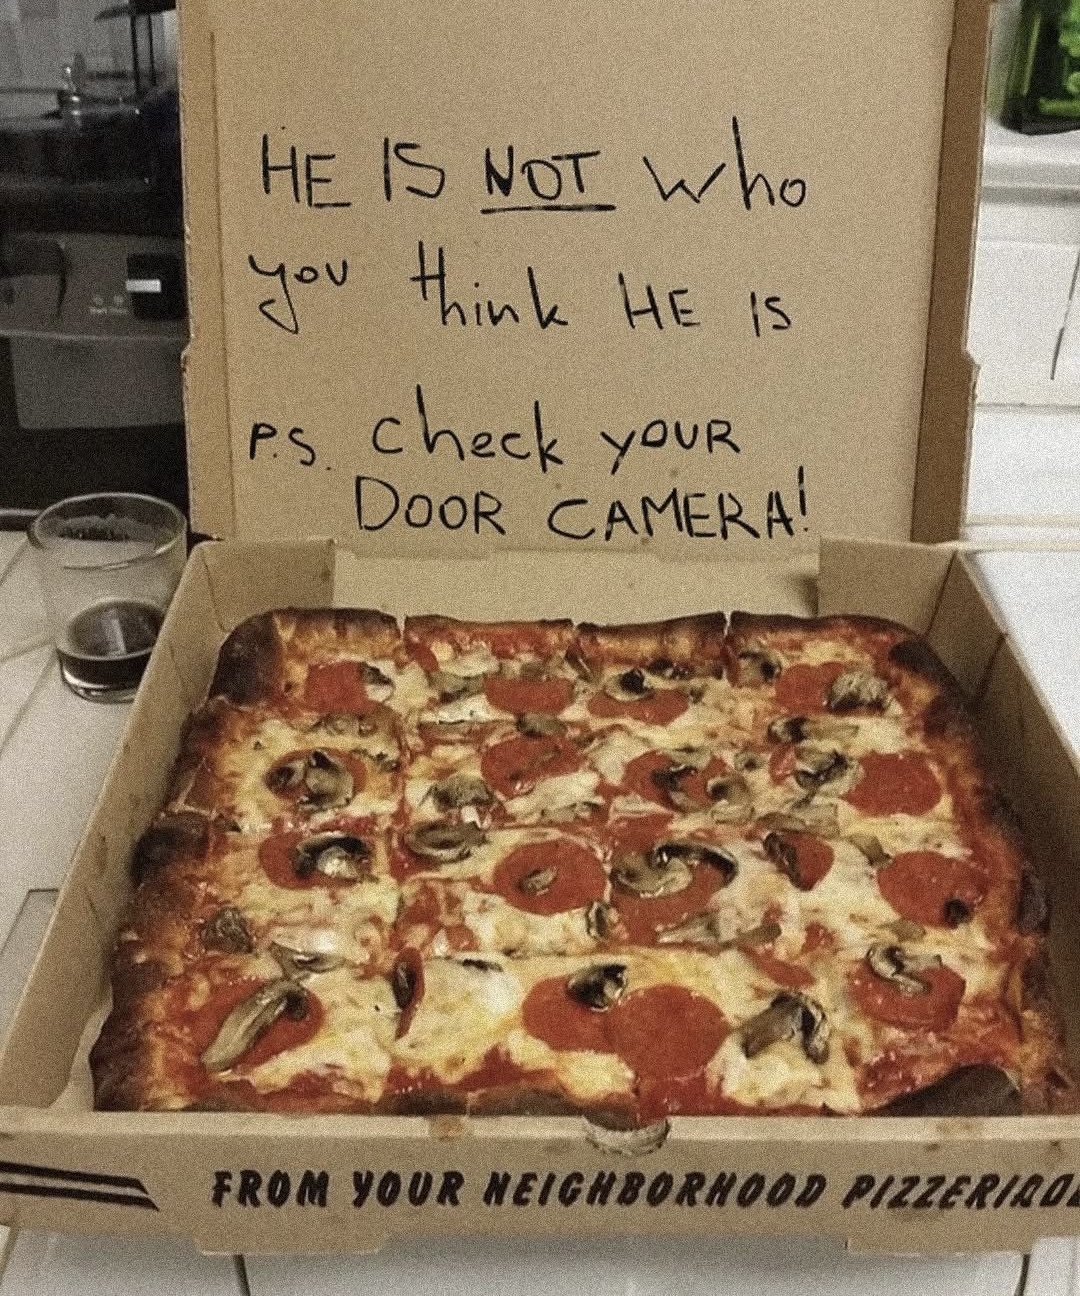 HE IS NOT who
you think HE IS
P.S. check your
DOOR CAMERA!
FROM YOUR NEIGHBORHOOD